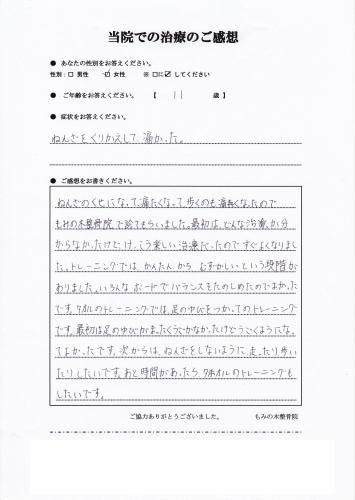 当院での治療のご感想
● あなたの性別をお答えください。
性別：□ 男性 ☑ 女性 ※ □に☑してください
● ご年齢をお答えください。 【 11 歳 】
● 症状をお答えください。
ねんざをくりかえして、痛かった。
● ご感想をお書きください。
ねんざのくせになって、痛たくなって、歩くのも痛たくなったので
もみの木整骨院で診てもらいました。最初は、どんな治療か分
からなかったけど、けっこう楽しい治療だったのですぐよくなりまし
た。トレーニングでは、かんたんからむずかしいという段階が
ありました。いろんなボードでバランスをたのしめたのでよかった
です。タオルのトレーニングでは、足のゆびをつかってのトレーニング
です。最初は足のゆびがまったくうごかなかったけどうごくようにな
てよかったです。次からは、ねんざをしないように、走ったり歩い
たりしたいです。あと時間があったら、タオルのトレーニングも
したいです。
ご協力ありがとうございました。 もみの木整骨院